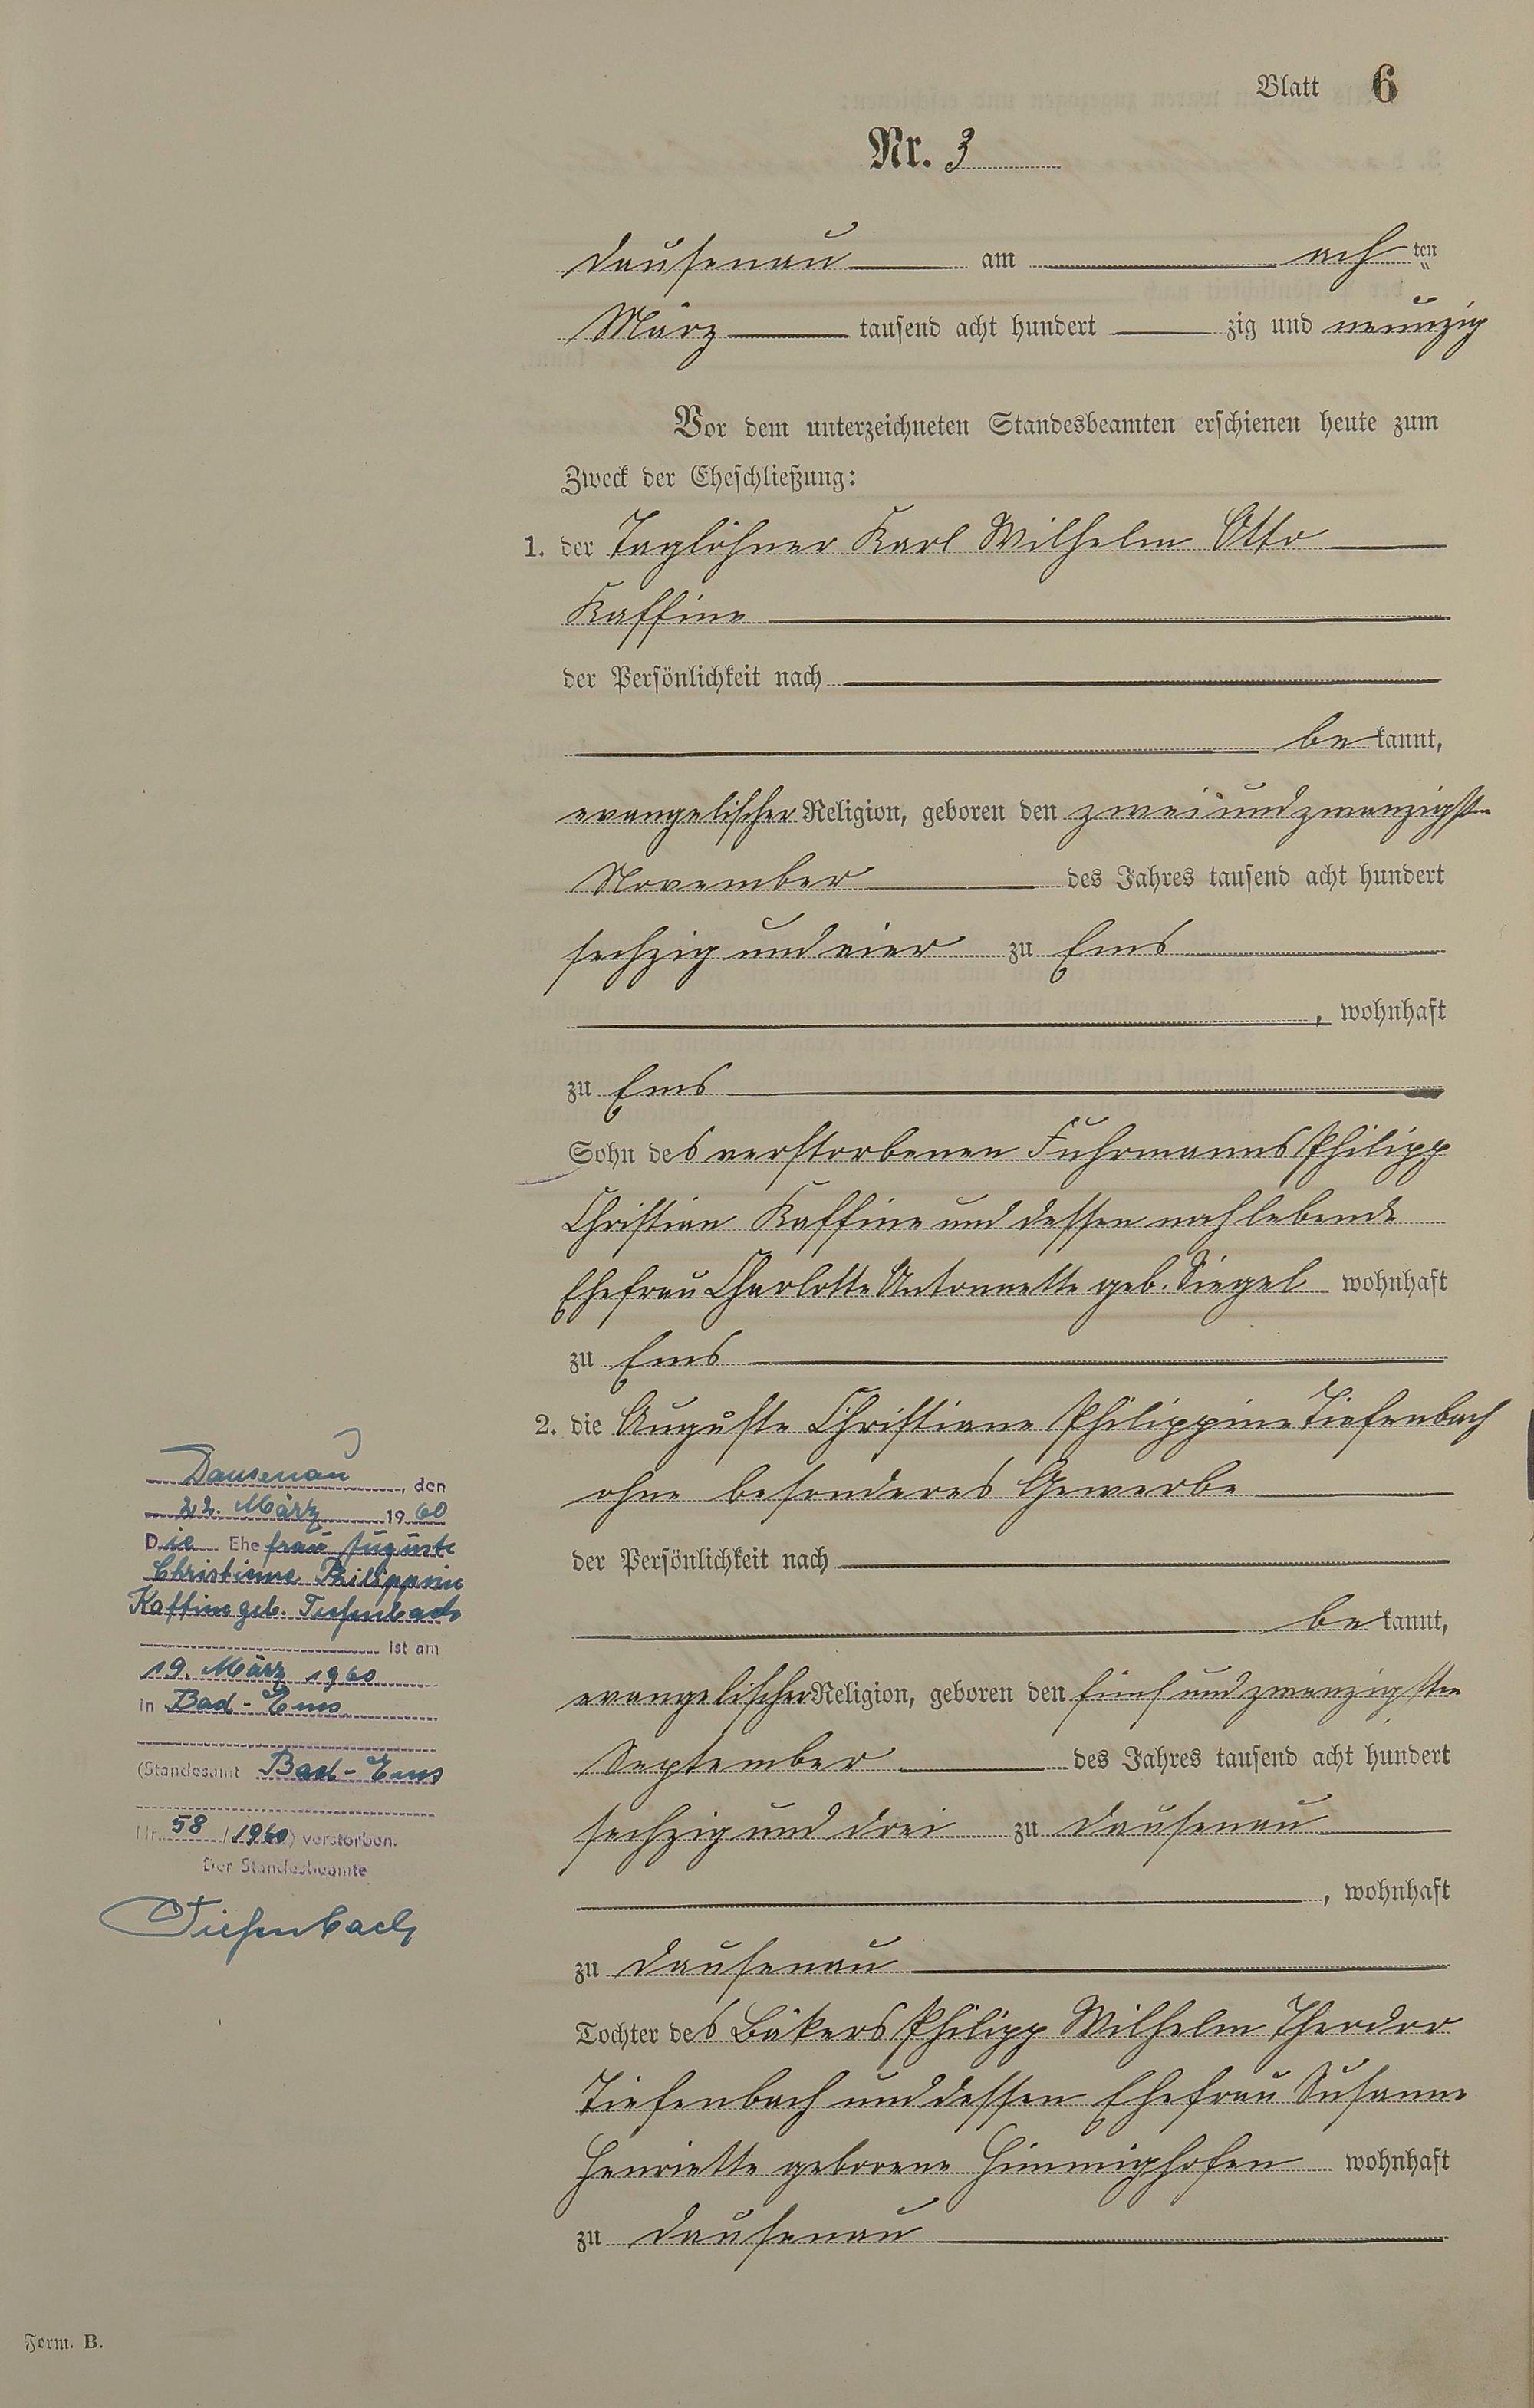 Blatt 6
Nr. 3
Dausenau am ach ten
März tausend acht hundert zig und neunzig
Vor dem unterzeichneten Standesbeamten erschienen heute zum
Zweck der Eheschließung:
1. der Taglöhner Karl Wilhelm Otto
Kaffine
der Persönlichkeit nach
be kannt,
evangelischer Religion, geboren den zweiundzwanzigsten
November des Jahres tausend acht hundert
sechzig und vier zu Ems
, wohnhaft
zu Ems
Sohn des verstorbenen Fuhrmanns Philipp
Christian Kaffine und dessen noch lebende
Ehefrau Charlotte Antonnette geb. Siegel wohnhaft
zu Ems
2. die Auguste Christiane Philippine Tiefenbach
ohne besonderes Gewerbe
der Persönlichkeit nach
be kannt,
evangelischer Religion, geboren den fünf und zwanzigsten
September des Jahres tausend acht hundert
sechzig und drei zu Dausenau
, wohnhaft
zu Dausenau
Tochter des Bäkers Philipp Wilhelm Theodor
Tiefenbach und dessen Ehefrau Susanne
Henriette geborene Himmighofen wohnhaft
zu Dausenau
Dausenau, den
22. März 1960
Die Ehefrau Auguste
Christiane Philippine
Kaffine geb. Tiefenbach
ist am
19. März 1960
in Bad-Ems
(Standesamt Bad-Ems
Nr. 58 / 1960) verstorben.
Der Standesbeamte
Tiefenbach
Form. B.